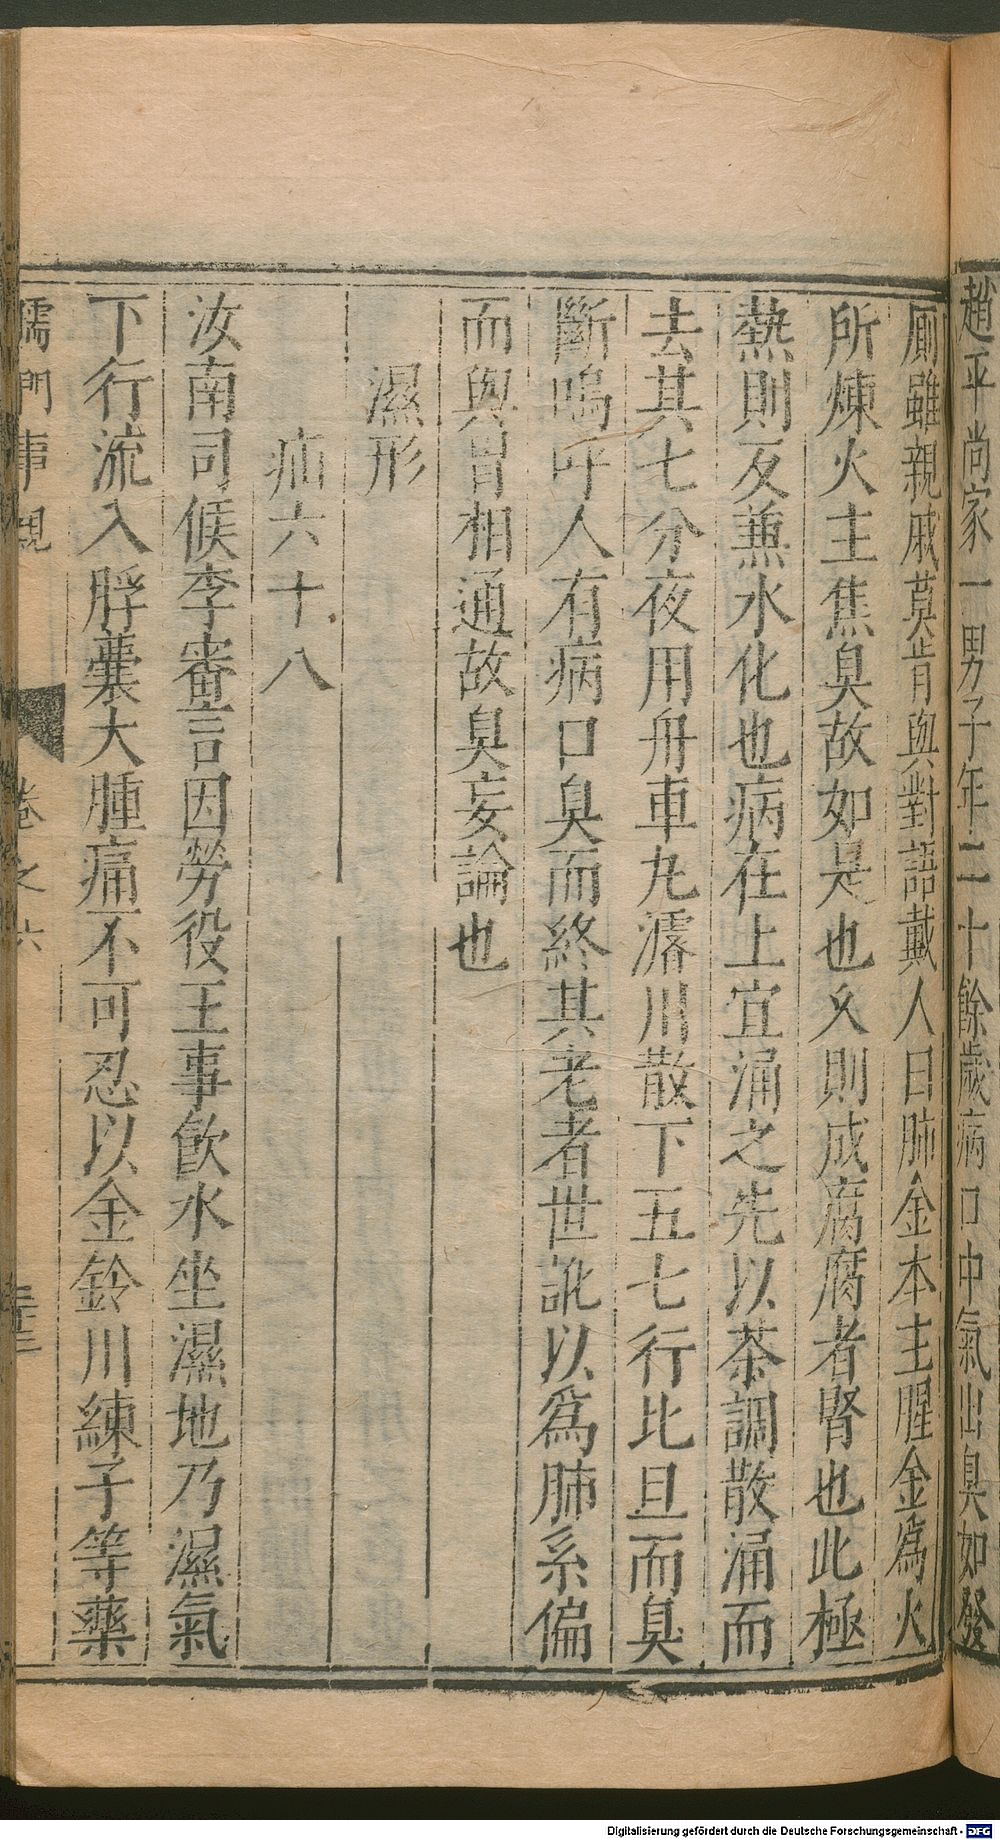 趙平尚家一男子年二十餘歲病口中氣出臭如發
厠雖親戚莫肯與對語戴人曰肺金本主腥金爲火
所煉火主焦臭故如是也乆則成腐腐者腎也此極
熱則反兼水化也病在上宜涌之先以茶調散涌而
去其七分夜用舟車丸濬川散下五七行比旦而臭
斷嗚呼人有病口臭而終其老者世訛以爲肺系偏
而與胃相通故臭妄論也
濕形
疝六十八
汝南司候李審言因勞役王事飲水坐濕地乃濕氣
下行流入脬囊大腫痛不可忍以金鈴川練子等藥
儒門事親 卷之六 三十三
Digitalisierung gefördert durch die Deutsche Forschungsgemeinschaft - DFG